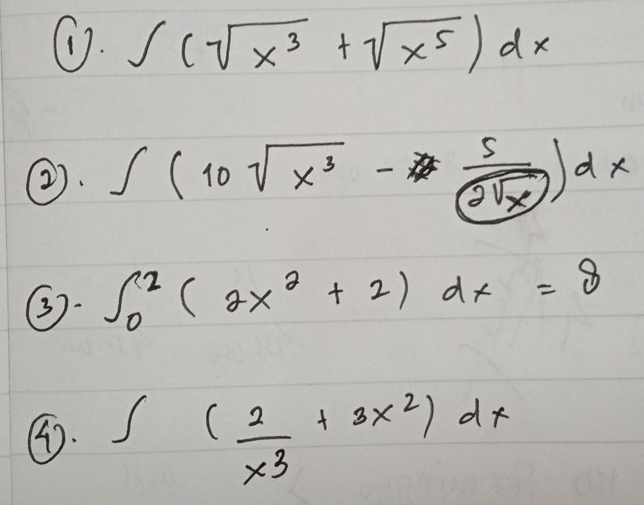 ①. ∫ (√x³ + √x⁵) dx
②. ∫ (10 √x³ - 5/(2√x)) dx
③. ∫₀² (2x² + 2) dx = 8
④. ∫ (2/x³ + 3x²) dx